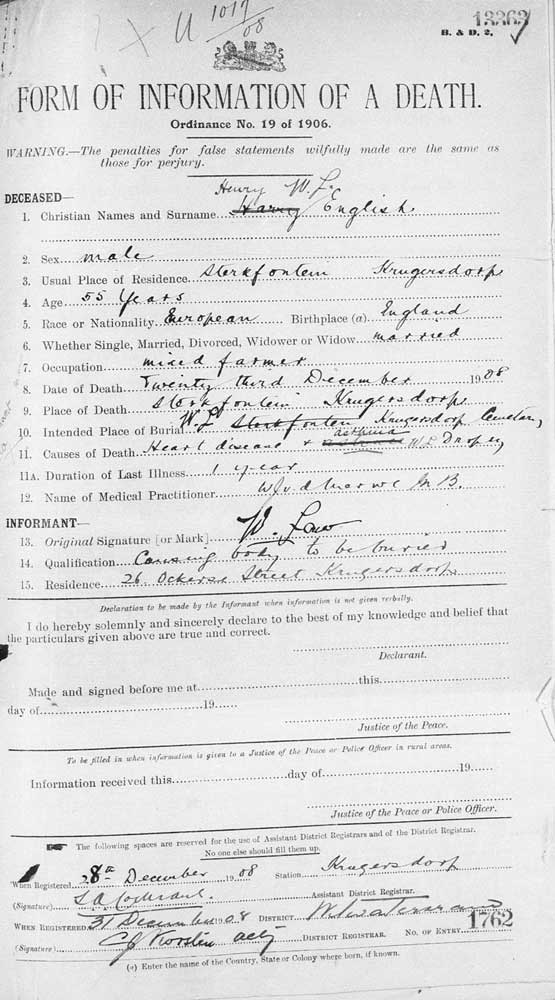 1017
08
13363
B. & D. 2.
FORM OF INFORMATION OF A DEATH.
Ordinance No. 19 of 1906.
WARNING.—The penalties for false statements wilfully made are the same as
those for perjury.
DECEASED—
Henry W. L.
1. Christian Names and Surname Harry English
2. Sex male
3. Usual Place of Residence Sterkfontein Krugersdorp
4. Age 55 Years
5. Race or Nationality European Birthplace (a) England
6. Whether Single, Married, Divorced, Widower or Widow married
7. Occupation mixed farmer
8. Date of Death Twenty third December 1908
9. Place of Death Sterkfontein Krugersdorp
10. Intended Place of Burial W.L Sterkfontein Krugersdorp Cemetery
asthma
11. Causes of Death Heart disease & W.L Dropsy
11A. Duration of Last Illness 1 year
12. Name of Medical Practitioner W J v d Merwe M B.
INFORMANT—
13. Original Signature [or Mark] W. Law
14. Qualification Causing body to be buried
15. Residence 26 Ockerse Street Krugersdorp
Declaration to be made by the Informant when information is not given verbally.
I do hereby solemnly and sincerely declare to the best of my knowledge and belief that
the particulars given above are true and correct.
Declarant.
Made and signed before me at this
day of 19
Justice of the Peace.
To be filled in when information is given to a Justice of the Peace or Police Officer in rural areas.
Information received this day of 19
Justice of the Peace or Police Officer.
The following spaces are reserved for the use of Assistant District Registrars and of the District Registrar.
No one else should fill them up.
When Registered 28th December 1908 Station Krugersdorp
(Signature) Assistant District Registrar.
WHEN REGISTERED 31 December 1908 DISTRICT Witwatersrand
(Signature) C J Korsten actg DISTRICT REGISTRAR. NO. OF ENTRY 1762
(a) Enter the name of the Country, State or Colony where born, if known.